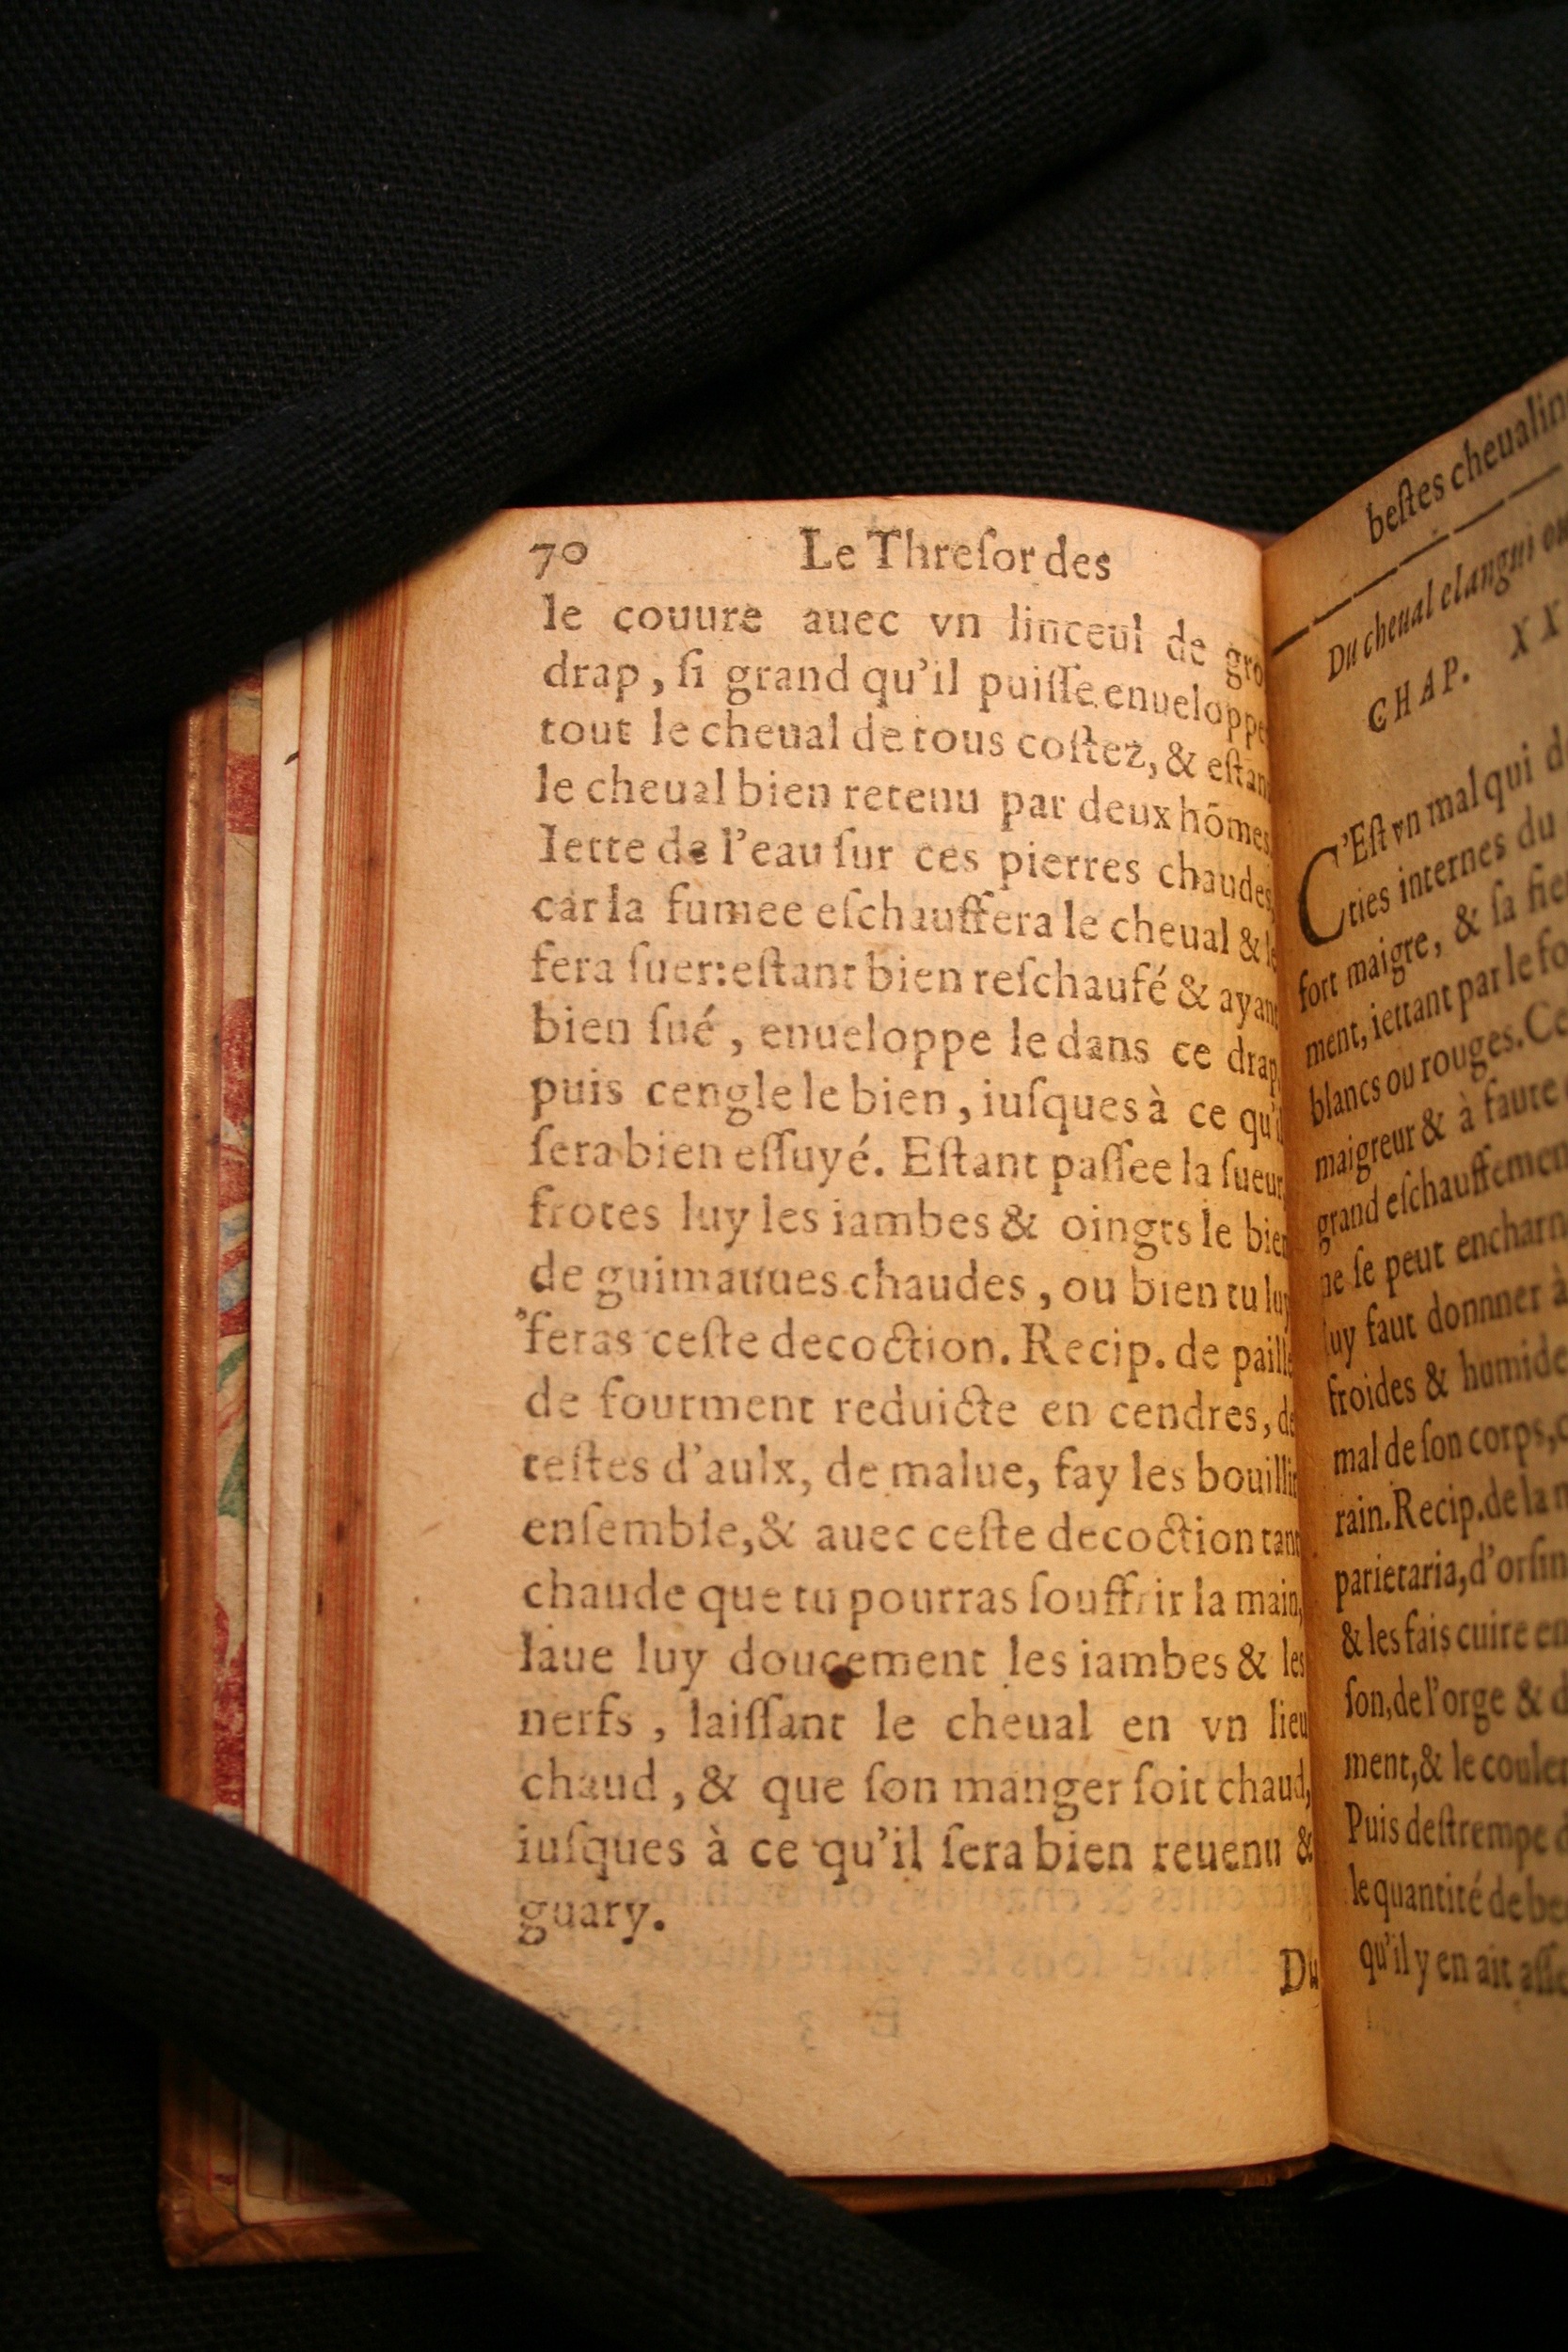 70 Le Threſor des
le couure auec vn linceul de gro
drap, ſi grand qu'il puiſſe enueloppe
tout le cheual de tous coſtez, & eſtan
le cheual bien retenu par deux hōmes
Iette de l'eau ſur ces pierres chaudes,
car la fumee eſchauffera le cheual & le
fera ſuer: eſtant bien reſchaufé & ayant
bien ſué, enueloppe le dans ce drap
puis cengle le bien, iuſques à ce qu'il
ſera bien eſſuyé. Eſtant paſſee la ſueur,
frotes luy les iambes & oingts le bien
de guimauues chaudes, ou bien tu luy
feras ceſte decoction. Recip. de paille
de fourment reduicte en cendres, de
teſtes d'aulx, de malue, fay les bouillir
enſemble, & auec ceſte decoction tant
chaude que tu pourras ſouffrir la main,
laue luy doucement les iambes & les
nerfs, laiſſant le cheual en vn lieu
chaud, & que ſon manger ſoit chaud,
iuſques à ce qu'il ſera bien reuenu &
guary.
Du
beſtes cheualin
Du cheual elangui ou
CHAP. XX
C'Eſt vn mal qui d
ties internes du
fort maigre, & ſa fie
ment, iettant par le fo
blancs ou rouges. Ce
maigreur & à faute
grand eſchauffemen
ne ſe peut encharn
luy faut donnner à
froides & humide
mal de ſon corps, c
rain. Recip. de la m
parietaria, d'orſin
& les fais cuire en
ſon, de l'orge & d
ment, & le couler
Puis deſtrempe d
le quantité de be
qu'il y en ait aſſe